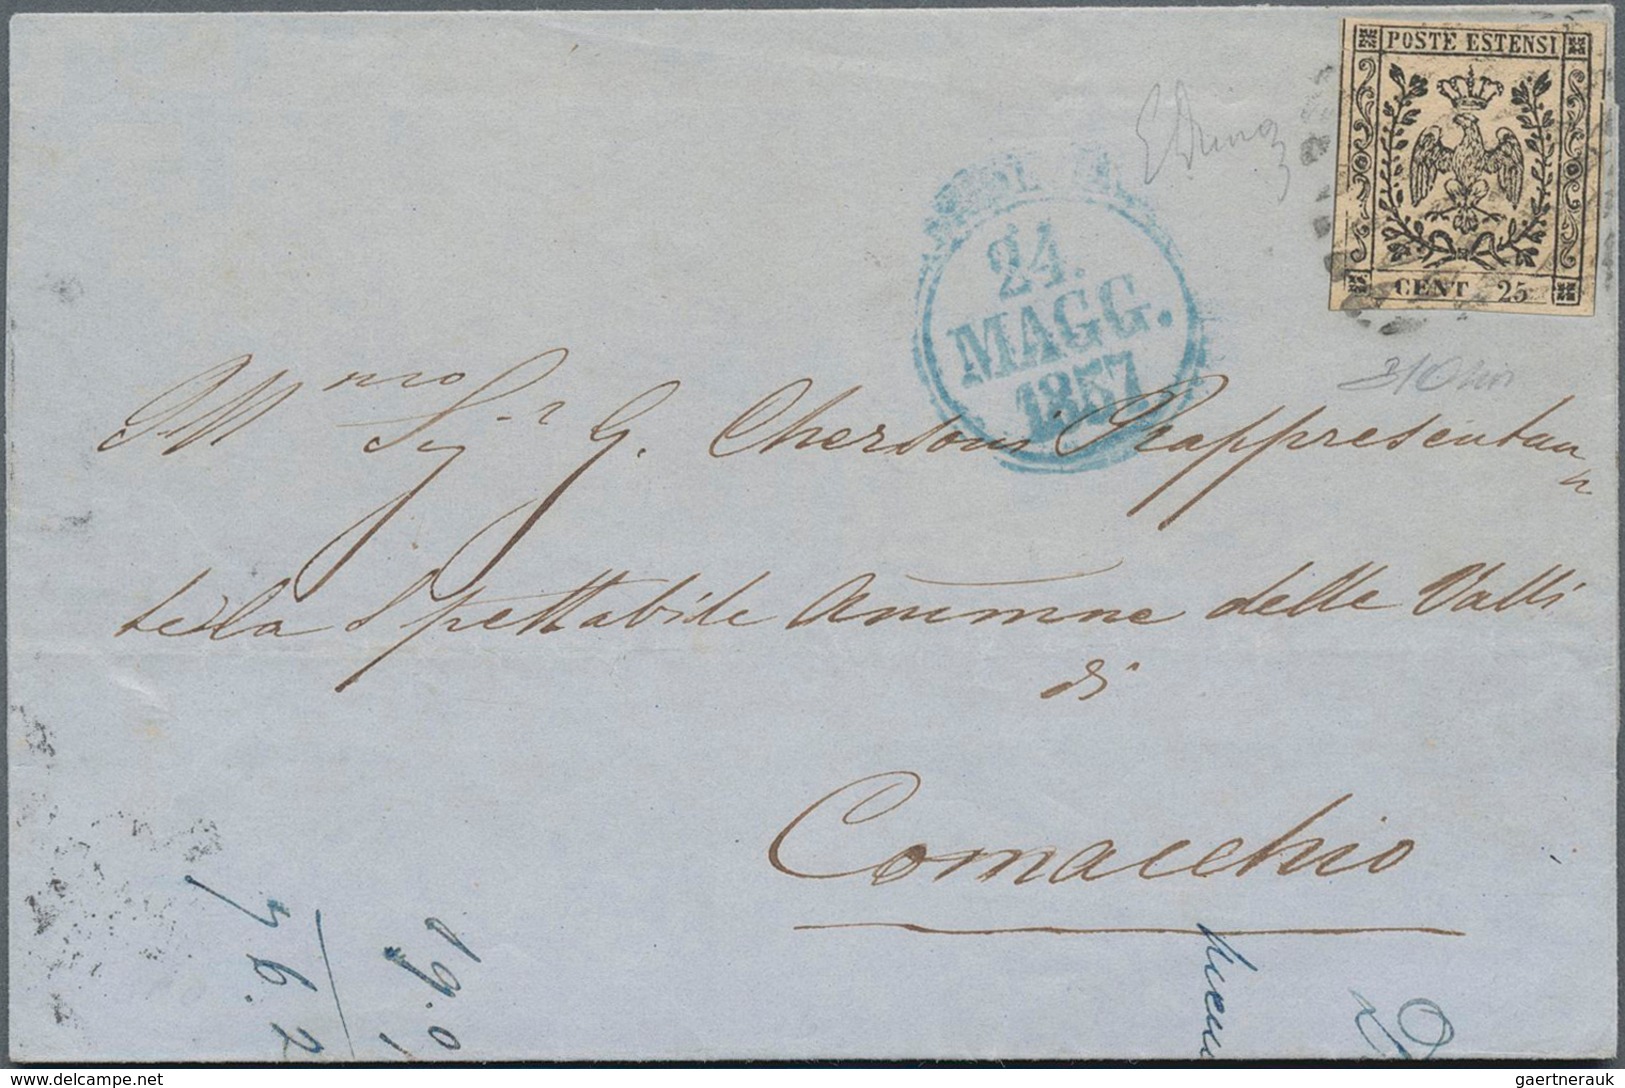 POSTE ESTENSI
CENT 25
24.
MAGG.
1857
Sig.r G. Chersoni Rappresentan=
te la Spettabile Amĩmne delle Valli
di
Comacchio
19.9
36.2
delcampe.net
gaertnerauk